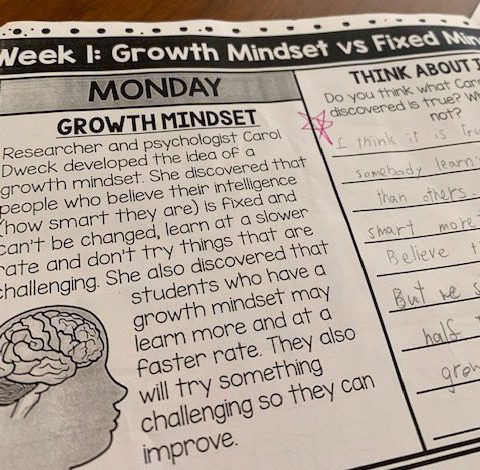 Week 1: Growth Mindset vs Fixed
MONDAY
GROWTH MINDSET
Researcher and psychologist Carol
Dweck developed the idea of a
growth mindset. She discovered that
people who believe their intelligence
(how smart they are) is fixed and
can't be changed, learn at a slower
rate and don't try things that are
challenging. She also discovered that
students who have a
growth mindset may
learn more and at a
faster rate. They also
will try something
challenging so they can
improve.
THINK ABOUT
Do you think what
discovered is true?
not?
I think it is
somebody
than others.
smart more
Believe
But we
half